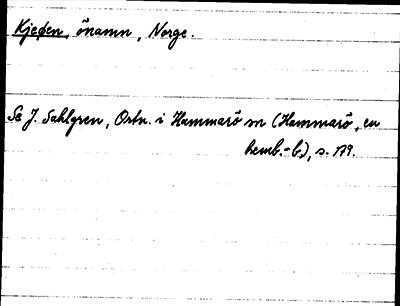 Kjeøen, önamn, Norge.
Se J. Sahlgren, Ortn. i Hammarö sn (Hammarö, en
hemb.-b.), s. 179.